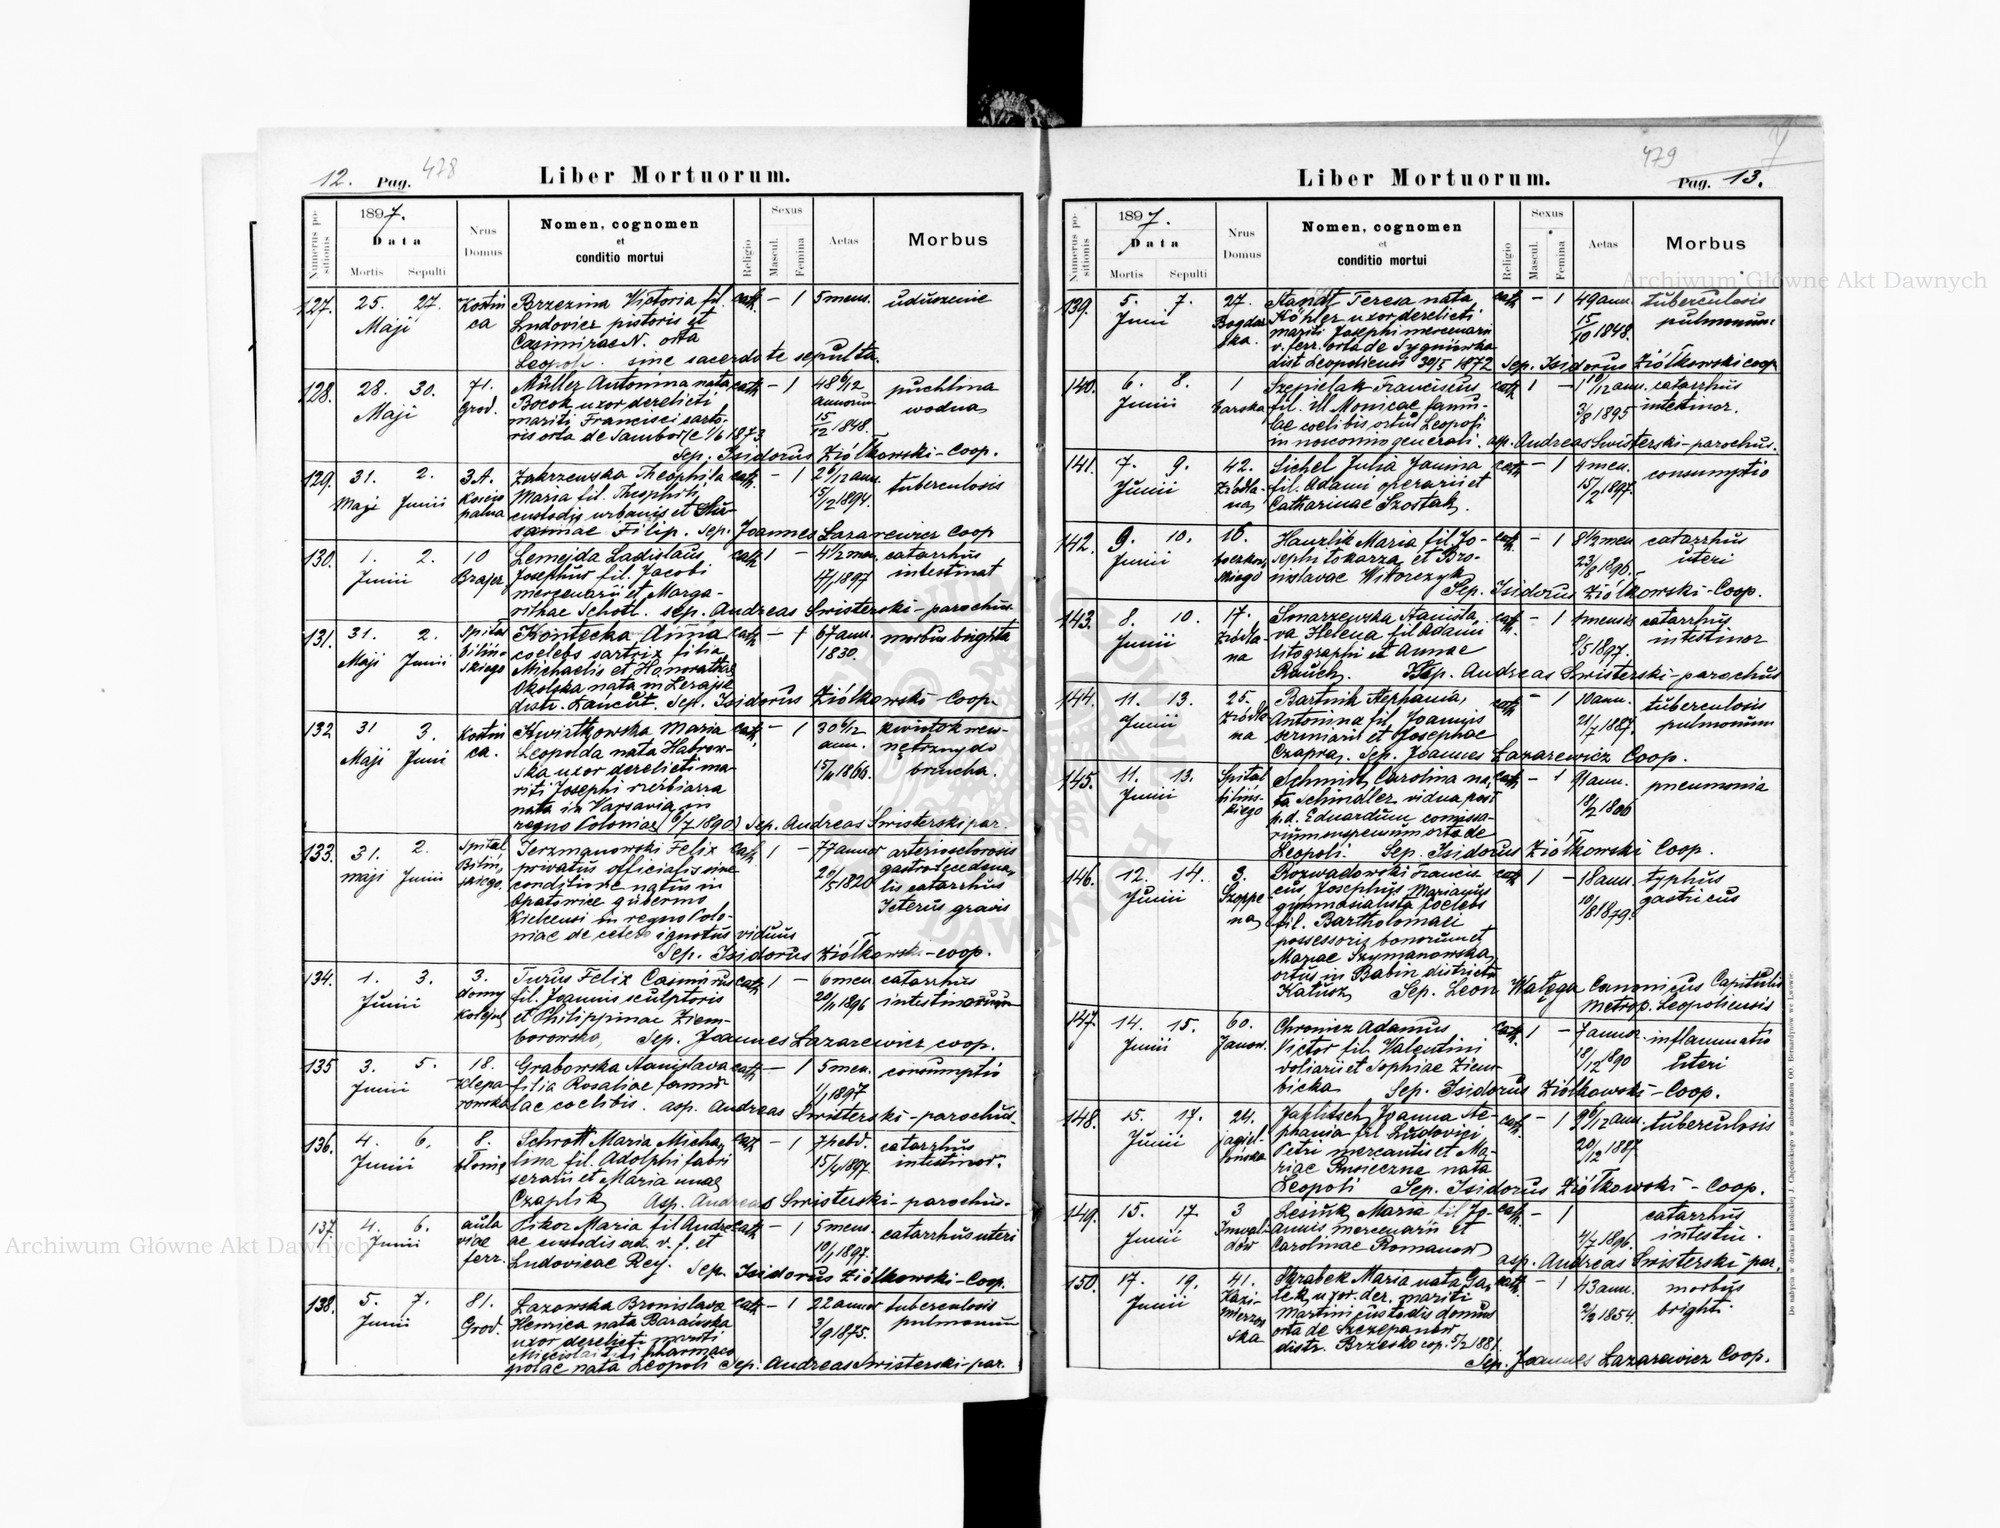 12. Pag. 478
Liber Mortuorum.
Numerus positionis
1897.
Data
Mortis Sepulti
Nrus Domus
Nomen, cognomen
et
conditio mortui
Religio
Sexus
Mascul. Femina
Aetas
Morbus
127. 25. 27. Kostni Brzezina Victoria fil. cath - 1 5 mens. uduszenie
Maji ca Ludovici pistoris et
Casimirae N. orta
Leopoli. sine sacerdote sepulta.
128. 28. 30. 71. Müller Antonina nata cath - 1 48 6/12 puchlina
Maji Grod. Bocok uxor derelicti annorum wodna
mariti Francisci sarto- 15/12 1848.
ris orta de Sambor /c 1/6 1873
Sep. Isidorus Ziółkowski-Coop.
129. 31. 2. 3A. Zakrzewska Theophila cath - 1 2 6/12 ann. tuberculosis
Maji Junii Maria fil. Theophili 15/2 1894.
custodis urbanis et
sannae Filip. Sep. Joannes Łazarewicz Coop
130. 1. 2. 10 Lemejda Ladislaus cath 1 - 4 1/2 men. catarrhus
Junii Brajer Josephus fil. Jacobi 17/1 1897 intestinat
mercenarii et Marga-
rithae Schotl. sep. Andreas Świsterski-parochus
131. 31. 2. Spital Kontecka Anna cath - 1 67 ann. morbus brighta
Maji Junii bilin- coelebs sartrix filia 1830.
skiego Michaelis et Honorathae
Okolska nata in Lerajsk
distr. Łańcut. Sep. Isidorus Ziółkowski-Coop.
132 31 3. Kostni Kwiatkowska Maria cath. - 1 30 6/12
Maji Junii ca. Leopolda nata Habrow- ann.
ska uxor derelicti ma- 15/11 1866. brzucha.
riti Josephi rzeźbiarza
nata in Varsavia in
regno Poloniae (6/7 1890) Sep. Andreas Świsterski par.
133. 31. 2. Spital Jerzmanowski Felix cath 1 - 77 annor arteriosclerosis
maji Junii Biliń- privatus officialis sine 20/5 1820
skiego. conditione natus in lis catarrhus
Opatowice guberno Icterus gravis
Kielcensi in regno Polo-
niae de cetero ignotus viduus
Sep. Isidorus Ziółkowski-coop.
134. 1. 3. 3. Turus Felix Casimirus cath 1 - 6 men catarrhus
Junii domy fil. Joannis sculptoris 20/11 1896 intestinorum
kolejow et Philippinae Ziem-
borowska, Sep. Joannes Łazarewicz coop.
135 3. 5. 18. Grabowska Stanislava cath - 1 5 men. consumptio
Junii Klepa- filia Rosaliae famu- 1/1 1897
rowska lae coelibis. asp. Andreas Świsterski-parochus.
136. 4. 6. 8. Schrott Maria Micha- cat - 1 7 hebd. catarrhus
Junii błonie lina fil. Adolphi fabri 15/4 1897. intestinor.
serarii et Maria unae
Czaplik Asp. Andreas Świsterski-parochus.
137. 4. 6. aula Pikor Maria fil Andre cath - 1 5 mens. catarrhus uteri
Junii viae ae custodis ad v. f. et 10/1 1897.
ferr. Ludovicae Rey. Sep. Isidorus Ziółkowski-Coop.
138. 5. 7. 81. Łazowska Bronislava cath - 1 22 annor tuberculosis
Junii Grod. Henrica nata Barańska 3/9 1875. pulmonum
uxor derelicti mariti
Miecislai pharmaco
polae nata Leopoli Sep. Andreas Świsterski-par.
479
Liber Mortuorum.
Pag. 13.
Numerus positionis
1897.
Data
Mortis Sepulti
Nrus Domus
Nomen, cognomen
et
conditio mortui
Religio
Sexus
Mascul. Femina
Aetas
Morbus
139. 5. 7. 27. Standt Teresa nata cath - 1 49 ann. tuberculosis
Junii Bogdar Köhler uxor derelicti 15/10 1848. pulmonum
ska. mariti Josephi mercenarii
v. ferr. orta de Sygniówka
dist Leopoliensi 30/5 1872 Sep. Isidorus Ziółkowski coop.
140. 6. 8. 1 Szepielak Franciscus cath 1 - 1 10/12 ann. catarrhus
Junii Żarska fil. ill Monicae famu- 3/8 1895 intestinor.
lae coelibis ortus Leopoli
in nosocomio generali. asp. Andreas Świsterski-parochus.
141. 7. 9. 42. Sichel Julia Janina cath - 1 4 men. consumptio
Junii Źródla- fil. Adami operarii et 15/2 1897.
na Catharinae Szostak.
142. 9. 10. 16. Hauzlik Maria fil Jo- cath. - 1 8 1/2 men catarrhus
Junii sephi tokarza et Bro- 23/8 1896. uteri
skiego nislavae Witorczyk
Sep. Isidorus Ziółkowski-Coop.
143. 8. 10. 17. Smarzewska Stanisla- cath. - 1 1 mensis catarrhus
Junii Źródla va Helena fil Adami 8/5 1897. intestinor
na litographi et Annae
Rauch. Sep. Andreas Świsterski-parochus
144. 11. 13. 25. Bartnik Stephania cath - 1 10 ann. tuberculosis
Junii Źródla Antonina fil. Joannis 21/7 1887. pulmonum
na seriniarii et Josephae
Czapra, Sep. Joannes Łazarewicz Coop.
145. 11. 13. Spital Schmidt Carolina na- cath - 1 91 ann. pneumonia
Junii biliń- ta Schindler vidua post 18/2 1806
skiego p.d. Eduardum comissa-
orta de
Leopoli. Sep. Isidorus Ziółkowski Coop.
146. 12. 14. 3. Rozwadowski Francis cath 1 - 18 ann. typhus
Junii Szoppe cus Josephus Marianus 10/8 1879 gastricus
na gymnasialista coelebs
fil. Bartholomaei
possessoris bonorum et
Mariae Szymanowska
ortus in Babin districtu
Kałusz Sep. Leon Wałęga Canonicus Capituli
Metrop. Leopoliensis
147. 14. 15. 60. Chroniez Adamus cath. 1 - 7 annor. inflammatio
Junii Janow. Victor fil. Valentini 18/12 1890 uteri
doliarii et Sophiae Ziem-
bicka Sep. Isidorus Ziółkowski-Coop.
148. 15. 17. 24. Jaklitsch Joanna Ste- cath. - 1 9 6/12 ann. tuberculosis
Junii jagiel- phania fil Ludovici 20/12 1887
lońska Petri mercantis et Ma-
riae Rusieczna nata
Leopoli Sep. Isidorus Ziółkowski-Coop.
149. 15. 17 3 Lesiuk Maria fil Jo- cath. - 1 catarrhus
Junii Inwali- annis mercenarii et 4/7 1896. intestin.
dów Carolinae Romanow
asp. Andreas Świsterski-par.
150. 17. 19. 41. Skrabek Maria nata Ga- cath. - 1 43 ann. morbus
Junii Kazi- łek uxor. der. mariti 2/2 1854. brighti
mierzow Martini custodis domus
ska orta de Szczepanów
distr. Brzesko cop. 5/2 1881
Sep. Joannes Łazarewicz Coop.
Do nabycia w drukarni katolickiej J. Chęcińskiego w zabudowaniu OO. Bernardynów we Lwowie.
Archiwum Główne Akt Dawnych
Archiwum Główne Akt Dawnych